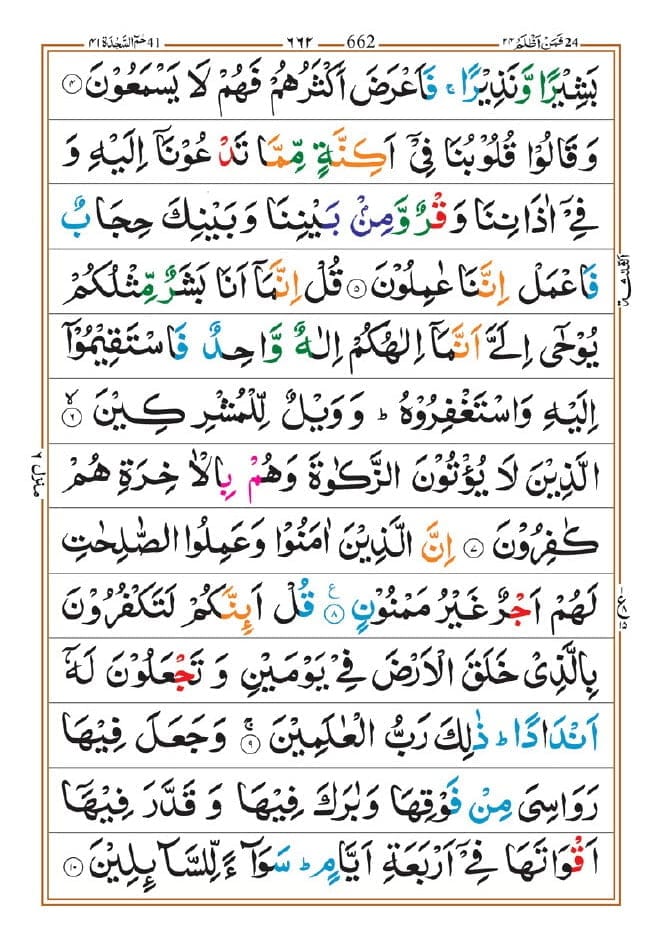 فَمَنْ اَظْلَمُ ۲۴ 24 662 ٦٦٢ حٰمٓ السَّجْدَة ۴۱ 41
بَشِيْرًا وَّنَذِيْرًا ۚ فَاَعْرَضَ اَكْثَرُهُمْ فَهُمْ لَا يَسْمَعُوْنَ ﴿۴﴾
وَ قَالُوْا قُلُوْبُنَا فِيْۤ اَكِنَّةٍ مِّمَّا تَدْعُوْنَاۤ اِلَيْهِ وَ
فِيْۤ اٰذَانِنَا وَقْرٌ وَّمِنْۢ بَيْنِنَا وَ بَيْنِكَ حِجَابٌ
فَاعْمَلْ اِنَّنَا عٰمِلُوْنَ ﴿۵﴾ قُلْ اِنَّمَاۤ اَنَا بَشَرٌ مِّثْلُكُمْ
الثلٰثة
يُوْحٰۤى اِلَيَّ اَنَّمَاۤ اِلٰهُكُمْ اِلٰهٌ وَّاحِدٌ فَاسْتَقِيْمُوْۤا
اِلَيْهِ وَاسْتَغْفِرُوْهُ ؕ وَ وَيْلٌ لِّلْمُشْرِكِيْنَ ﴿۶﴾ ۙ
الَّذِيْنَ لَا يُؤْتُوْنَ الزَّكٰوةَ وَهُمْ بِالْاٰخِرَةِ هُمْ
منزل ٦
كٰفِرُوْنَ ﴿۷﴾ اِنَّ الَّذِيْنَ اٰمَنُوْا وَعَمِلُوا الصّٰلِحٰتِ
لَهُمْ اَجْرٌ غَيْرُ مَمْنُوْنٍ ﴿۸﴾ ع قُلْ اَىِٕنَّكُمْ لَتَكْفُرُوْنَ
بِالَّذِيْ خَلَقَ الْاَرْضَ فِيْ يَوْمَيْنِ وَ تَجْعَلُوْنَ لَهٗۤ
اَنْدَادًا ؕ ذٰلِكَ رَبُّ الْعٰلَمِيْنَ ﴿۹﴾ ۚ وَ جَعَلَ فِيْهَا
رَوَاسِيَ مِنْ فَوْقِهَا وَ بٰرَكَ فِيْهَا وَ قَدَّرَ فِيْهَاۤ
اَقْوَاتَهَا فِيْۤ اَرْبَعَةِ اَيَّامٍ ؕ سَوَآءً لِّلسَّآىِٕلِيْنَ ﴿۱۰﴾